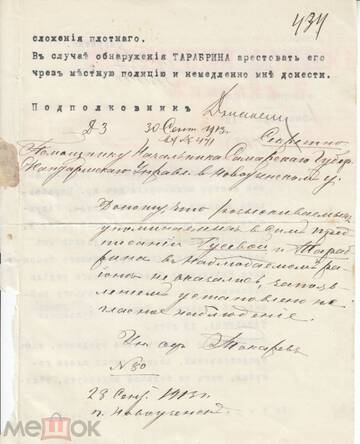 434
сложенія плотнаго.
Въ случаѣ обнаруженія ТАРАБРИНА арестовать его
чрез мѣстную полицію и немедленно мнѣ донести.
Подполковникъ
30 Сент. 1913г.
вх № 471
Секретно
Помощнику Начальника Самарскаго Губер.
Жандармскаго Управ. в Новоузенском у.
Доношу, что розыскиваемые,
упоминаемые в сем пред
писаніи Гусевой и Тараб
рина в наблюдаемом ра
іоне не оказалось, за по
явленіем установлено не
гласное наблюденіе.
Токарев
№ 80
28 Сент. 1913 г.
г. Новоузенск
МЕШОК